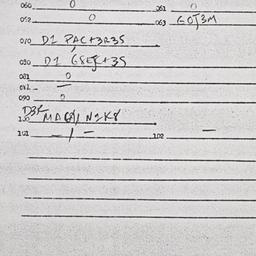 060 0 061 0
052 0 063 G0J3M
070 D1 PAC+3A3S
080 D1 GSEJ+3S
081 0
082 —
090 0
D3K
100 MAG01 N2K8
101 — / — 102 —